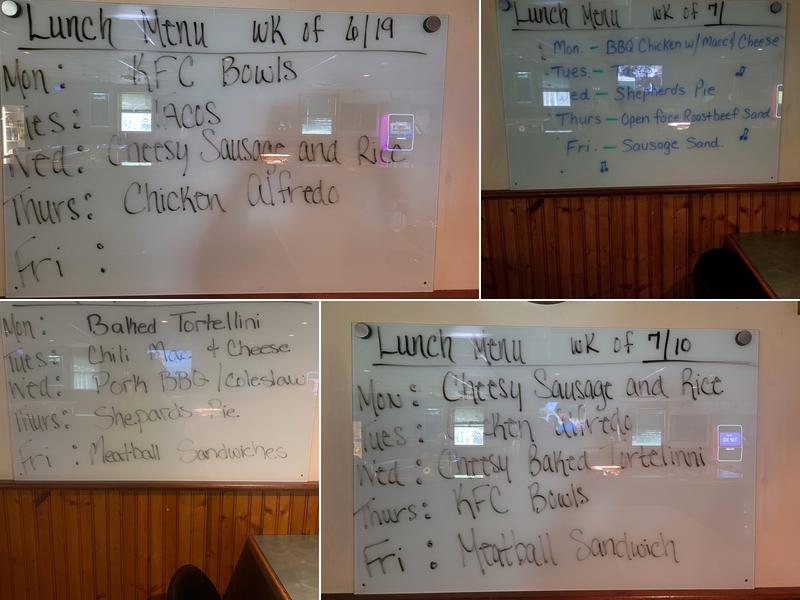 Lunch Menu wk of 6/19
Mon: KFC Bowls
Tues: Tacos
Wed: Cheesy Sausage and Rice
Thurs: Chicken Alfredo
Fri :
Lunch Menu wk of 7/
Mon. - BBQ Chicken w/ Macc & Cheese
Tues -
Wed - Shepherds Pie
Thurs - Open face Roast beef Sand.
Fri. - Sausage Sand.
Mon: Baked Tortellini
Tues: Chili Mac & Cheese
Wed: Pork BBQ / Coleslaw
Thurs: Shepards Pie
Fri : Meatball Sandwiches
Lunch Menu wk of 7/10
Mon: Cheesy Sausage and Rice
Tues: Chicken Alfredo
Wed: Cheesy Baked Tortelinni
Thurs: KFC Bowls
Fri : Meatball Sandwich